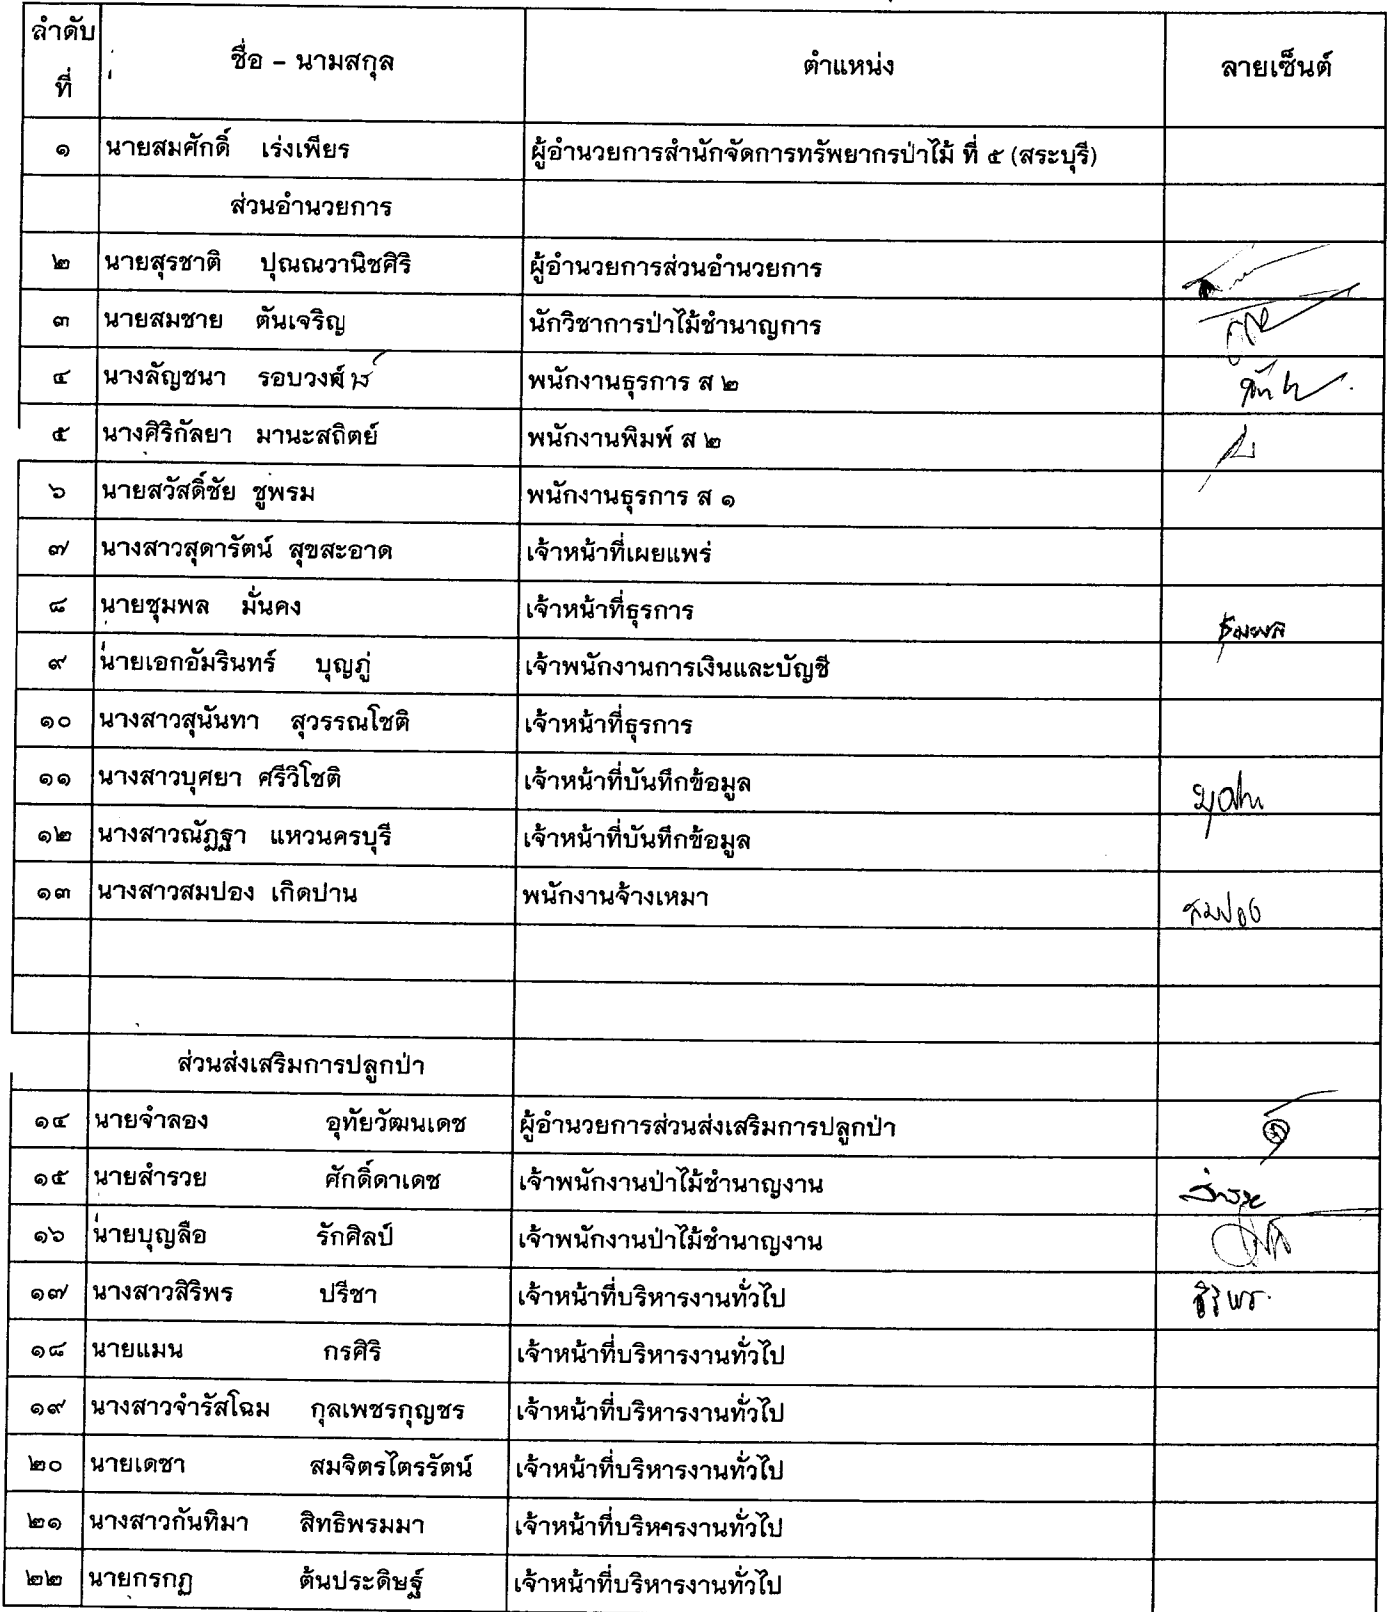 ลำดับที่ ชื่อ - นามสกุล ตำแหน่ง ลายเซ็นต์
๑ นายสมศักดิ์ เร่งเพียร ผู้อำนวยการสำนักจัดการทรัพยากรป่าไม้ ที่ ๕ (สระบุรี)
ส่วนอำนวยการ
๒ นายสุรชาติ ปุณณวานิชศิริ ผู้อำนวยการส่วนอำนวยการ
๓ นายสมชาย ตันเจริญ นักวิชาการป่าไม้ชำนาญการ
๔ นางลัญชนา รอบวงศ์ พนักงานธุรการ ส ๒
๕ นางศิริกัลยา มานะสถิตย์ พนักงานพิมพ์ ส ๒
๖ นายสวัสดิ์ชัย ชูพรม พนักงานธุรการ ส ๑
๗ นางสาวสุดารัตน์ สุขสะอาด เจ้าหน้าที่เผยแพร่
๘ นายชุมพล มั่นคง เจ้าหน้าที่ธุรการ ชุมพล
๙ นายเอกอัมรินทร์ บุญภู่ เจ้าพนักงานการเงินและบัญชี
๑๐ นางสาวสุนันทา สุวรรณโชติ เจ้าหน้าที่ธุรการ
๑๑ นางสาวบุศยา ศรีวิโชติ เจ้าหน้าที่บันทึกข้อมูล
๑๒ นางสาวณัฏฐา แหวนครบุรี เจ้าหน้าที่บันทึกข้อมูล
๑๓ นางสาวสมปอง เกิดปาน พนักงานจ้างเหมา สมปอง
ส่วนส่งเสริมการปลูกป่า
๑๔ นายจำลอง อุทัยวัฒนเดช ผู้อำนวยการส่วนส่งเสริมการปลูกป่า
๑๕ นายสำรวย ศักดิ์ดาเดช เจ้าพนักงานป่าไม้ชำนาญงาน
๑๖ นายบุญลือ รักศิลป์ เจ้าพนักงานป่าไม้ชำนาญงาน
๑๗ นางสาวสิริพร ปรีชา เจ้าหน้าที่บริหารงานทั่วไป สิริพร
๑๘ นายแมน กรศิริ เจ้าหน้าที่บริหารงานทั่วไป
๑๙ นางสาวจำรัสโฉม กุลเพชรกุญชร เจ้าหน้าที่บริหารงานทั่วไป
๒๐ นายเดชา สมจิตรไตรรัตน์ เจ้าหน้าที่บริหารงานทั่วไป
๒๑ นางสาวกันทิมา สิทธิพรมมา เจ้าหน้าที่บริหารงานทั่วไป
๒๒ นายกรกฏ ต้นประดิษฐ์ เจ้าหน้าที่บริหารงานทั่วไป